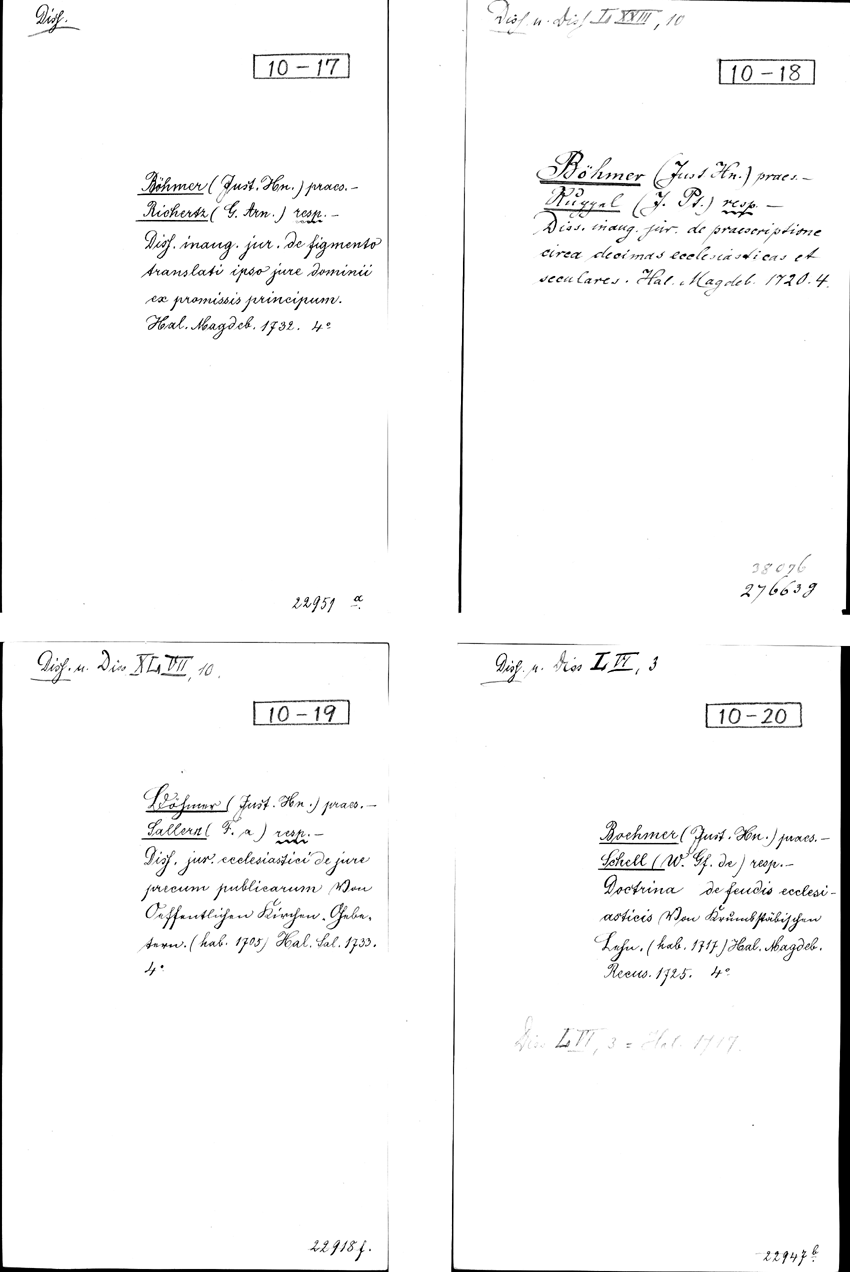 Diss.
10-17
Böhmer (Just. Hn.) praes. –
Richertz (G. Arn.) resp. –
Diss. inaug. jur. de figmento
translati ipso jure dominii
ex promissis principum.
Hal. Magdeb. 1732. 4°
22951 a.
Diss. u. Diss LXXIII, 10
10-18
Böhmer (Just Hn.) praes. –
(J. Pt.) resp. –
Diss. inaug. jur. de praescriptione
circa decimas ecclesiasticas et
seculares. Hal. Magdeb. 1720. 4.
38076
276639
Diss. u. Diss XLVII, 10.
10-19
Böhmer (Just. Hn.) praes. –
Sallern (F. a) resp. –
Diss. jur. ecclesiastici de jure
precum publicarum Von
Oeffentlichen Kirchen-Gebe-
tern. (hab. 1705) Hal. Sal. 1733.
4°
22918 f.
Diss. u. Diss LVI, 3
10-20
Boehmer (Just. Hn.) praes. –
Schell (W. Gf. de) resp. –
Doctrina de feudis ecclesi-
asticis Von Krumbstäbischen
Lehn. (hab. 1717) Hal. Magdeb.
Recus. 1725. 4°
Diss LVI, 3 = Hal. 1717.
22947 b.